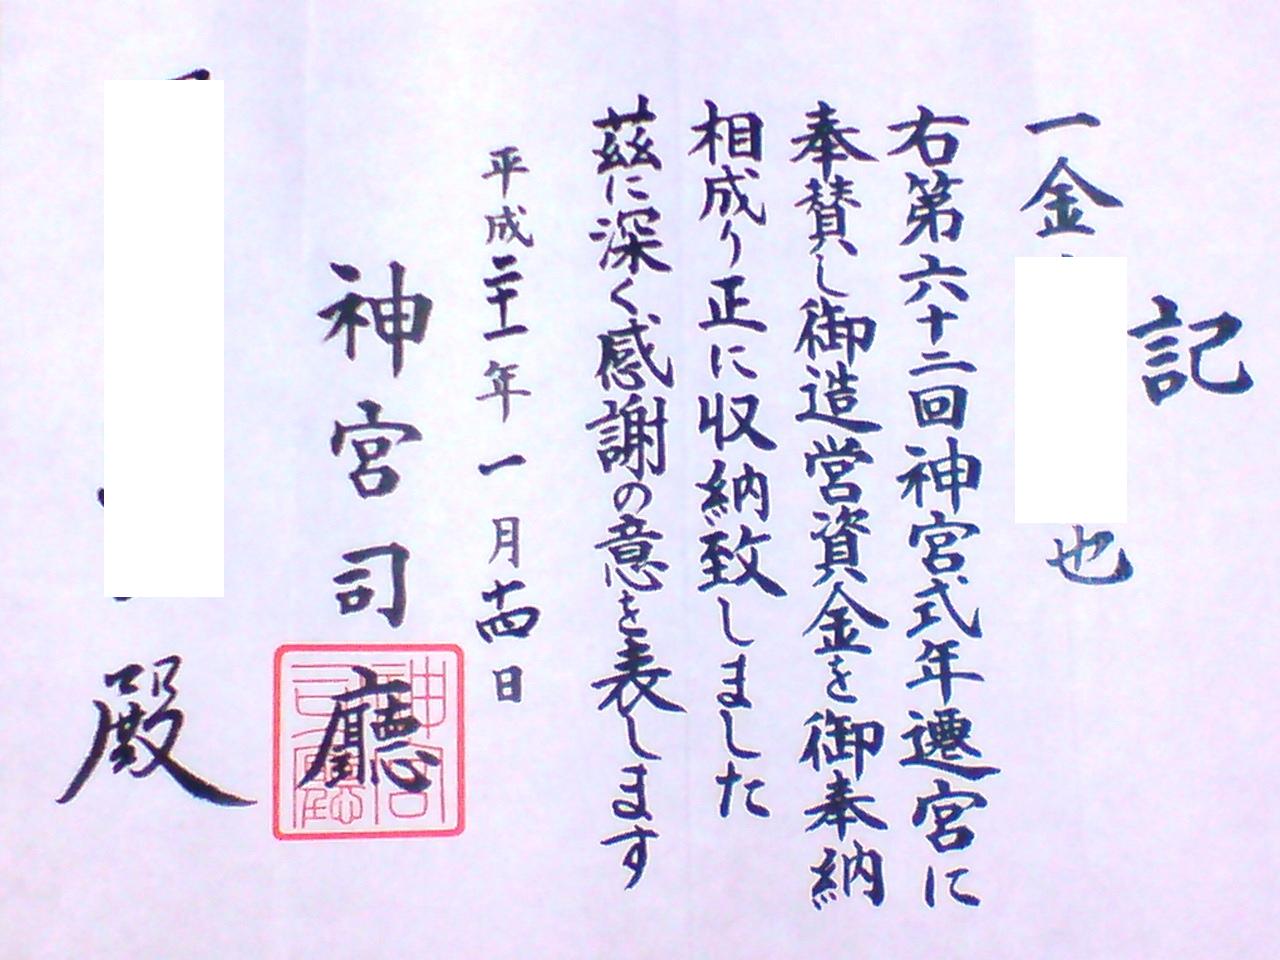 記
一金
也
右第六十二回神宮式年遷宮に
奉賛し御造営資金を御奉納
相成り正に収納致しました
茲に深く感謝の意を表します
平成二十一年一月十四日
神宮司廳
神宮司廳
殿